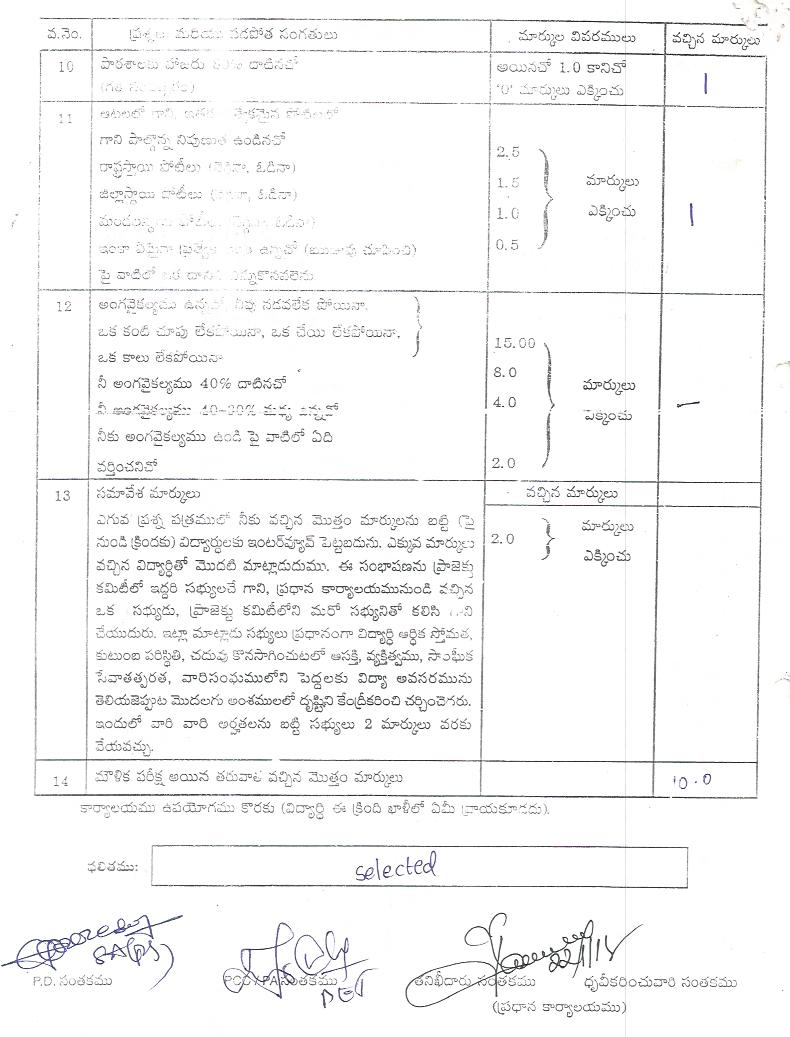 వ.నెం. ప్రశ్నలు మరియు నడపోత సంగతులు మార్కుల వివరములు వచ్చిన మార్కులు
10 పాఠశాలకు హాజరు దాటినచో అయినచో 1.0 కానిచో
'0' మార్కులు ఎక్కించు 1
11 ఆటలలో గాని, పోటీలలో
గాని పాల్గొన్న నిపుణుత ఉండినచో
రాష్ట్రస్తాయి పోటీలు ఓడినా) 2.5
జిల్లాస్తాయి పోటీలు ఓడినా) 1.5 మార్కులు
ఓడినా) 1.0 ఎక్కించు 1
ఇంకా ఏమైనా ప్రత్యేక ఉన్నచో (ఋజువు చూపించి) 0.5
పై వాటిలో ఒక దానిని ఎన్నుకొనవలెను
12 అంగవైకల్యము ఉన్నచో, నీవు నడవలేక పోయినా,
ఒక కంటి చూపు లేకపోయినా, ఒక చేయి లేకపోయినా,
ఒక కాలు లేకపోయినా 15.00
నీ అంగవైకల్యము 40% దాటినచో 8.0 మార్కులు
నీ అంగవైకల్యము మధ్య ఉన్నచో 4.0 ఎక్కించు –
నీకు అంగవైకల్యము ఉండి పై వాటిలో ఏది
వర్తించనిచో 2.0
13 సమావేశ మార్కులు వచ్చిన మార్కులు
ఎగువ ప్రశ్న పత్రములో నీకు వచ్చిన మొత్తం మార్కులను బట్టి (పై
నుండి క్రిందకు) విద్యార్థులకు ఇంటర్వ్యూవ్ పెట్టబడును. ఎక్కువ మార్కులు 2.0 మార్కులు
వచ్చిన విద్యార్థితో మొదటి మాట్లాడుదుము. ఈ సంభాషణను ప్రాజెక్టు ఎక్కించు
కమిటీలో ఇద్దరి సభ్యులచే గాని, ప్రధాన కార్యాలయమునుండి వచ్చిన
ఒక సభ్యుడు, ప్రాజెక్టు కమిటీలోని మరో సభ్యునితో కలిసి గాని
చేయుదురు. ఇట్లా మాట్లాడు సభ్యులు ప్రధానంగా విద్యార్థి ఆర్థిక స్తోమత,
కుటుంబ పరిస్థితి, చదువు కొనసాగించుటలో ఆసక్తి, వ్యక్తిత్వము, సాంఘీక
సేవాతత్పరత, వారిసంఘములోని పెద్దలకు విద్యా అవసరమును
తెలియజెప్పుట మొదలగు అంశములలో దృష్టిని కేంద్రీకరించి చర్చించెగరు.
ఇందులో వారి వారి అర్హతలను బట్టి సభ్యులు 2 మార్కులు వరకు
వేయవచ్చు.
14 మౌళిక పరీక్ష అయిన తరువాత వచ్చిన మొత్తం మార్కులు 10.0
కార్యాలయము ఉపయోగము కొరకు (విద్యార్థి ఈ క్రింది ఖాళీలో ఏమీ వ్రాయకూడదు).
ఫలితము: selected
SA(PS) 22/1/15
P.D. సంతకము సంతకము తనిఖీదారు సంతకము ధృవీకరించువారి సంతకము
(ప్రధాన కార్యాలయము)